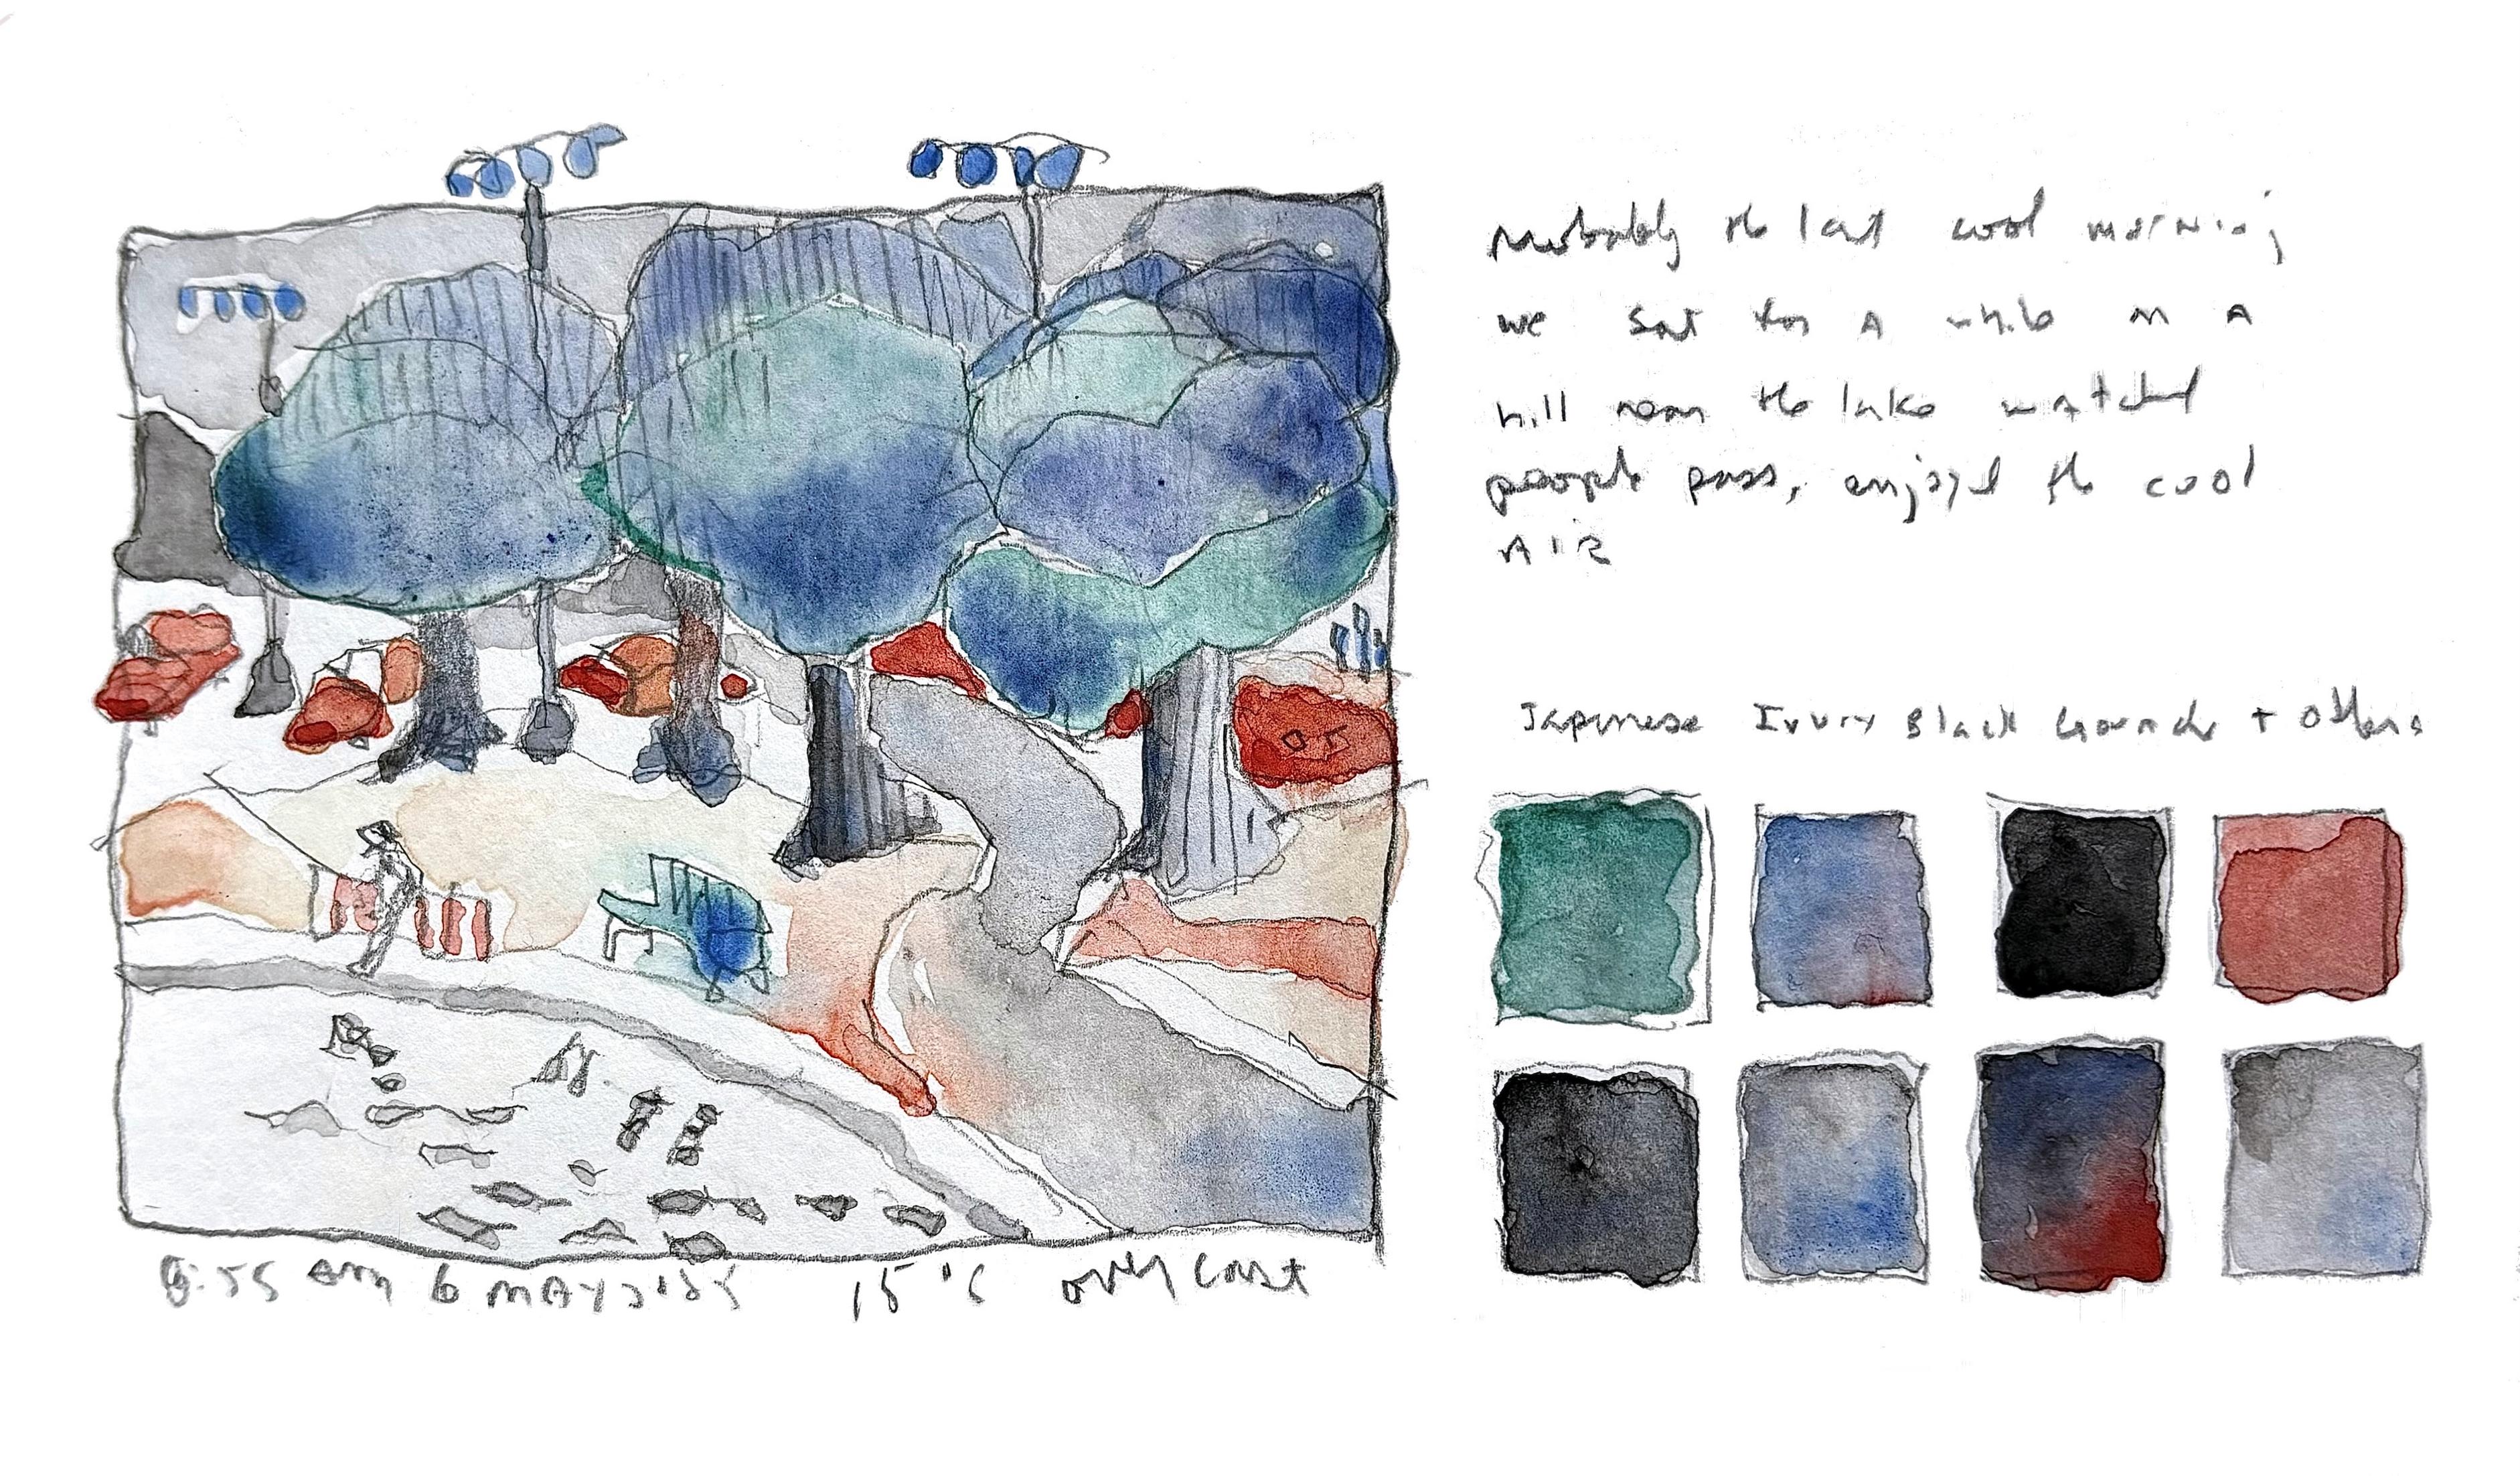 Probably the last cool morning
we sat for a while on a
hill near the lake watched
people pass, enjoyed the cool
AIR
Japanese Ivory Black Gouache + others
am 6 MAY 15°C overcast